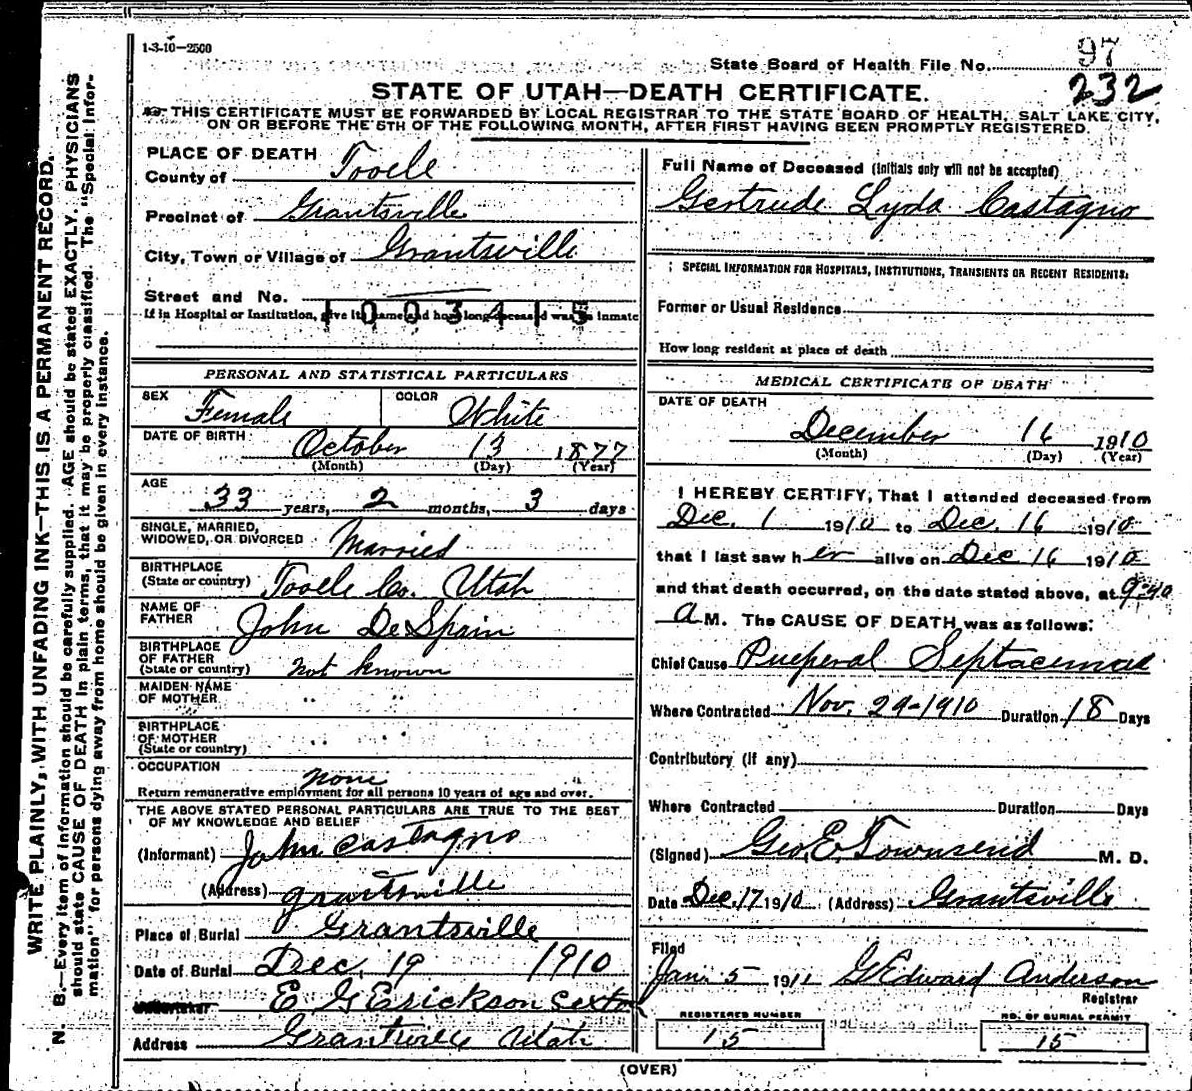 1-3-10-2500
State Board of Health File No. 97
232
STATE OF UTAH—DEATH CERTIFICATE.
THIS CERTIFICATE MUST BE FORWARDED BY LOCAL REGISTRAR TO THE STATE BOARD OF HEALTH, SALT LAKE CITY,
ON OR BEFORE THE 5TH OF THE FOLLOWING MONTH, AFTER FIRST HAVING BEEN PROMPTLY REGISTERED.
WRITE PLAINLY, WITH UNFADING INK—THIS IS A PERMANENT RECORD.
N. B.—Every item of information should be carefully supplied. AGE should be stated EXACTLY. PHYSICIANS
should state CAUSE OF DEATH in plain terms, that it may be properly classified. The "Special Infor-
mation" for persons dying away from home should be given in every instance.
PLACE OF DEATH
County of Tooele
Precinct of Grantsville
City, Town or Village of Grantsville
Street and No.
1003415
If in Hospital or Institution, give its name and how long deceased was an inmate
PERSONAL AND STATISTICAL PARTICULARS
SEX Female COLOR White
DATE OF BIRTH October 13 1877
(Month) (Day) (Year)
AGE
33 years, 2 months, 3 days
SINGLE, MARRIED,
WIDOWED, OR DIVORCED Married
BIRTHPLACE
(State or country) Tooele Co. Utah
NAME OF
FATHER John DeSpain
BIRTHPLACE
OF FATHER
(State or country) not known
MAIDEN NAME
OF MOTHER " "
BIRTHPLACE
OF MOTHER
(State or country) " "
OCCUPATION none
Return remunerative employment for all persons 10 years of age and over.
THE ABOVE STATED PERSONAL PARTICULARS ARE TRUE TO THE BEST
OF MY KNOWLEDGE AND BELIEF
(Informant) John Castagno
(Address) grantsville
Place of Burial Grantsville
Date of Burial Dec. 19 1910
Undertaker E G Erickson Sexton
Address Grantsville Utah
Full Name of Deceased (Initials only will not be accepted)
Gertrude Lyda Castagno
SPECIAL INFORMATION FOR HOSPITALS, INSTITUTIONS, TRANSIENTS OR RECENT RESIDENTS:
Former or Usual Residence
How long resident at place of death
MEDICAL CERTIFICATE OF DEATH
DATE OF DEATH
December 16 1910
(Month) (Day) (Year)
I HEREBY CERTIFY, That I attended deceased from
Dec. 1 1910 to Dec. 16 1910
that I last saw her alive on Dec 16 1910
and that death occurred, on the date stated above, at 9:40
A M. The CAUSE OF DEATH was as follows:
Chief Cause Pueperal Septacemae
Where Contracted Nov. 29-1910 Duration 18 Days
Contributory (if any)
Where Contracted Duration Days
(Signed) Geo. E. Townsend M. D.
Date Dec. 17 1910 (Address) Grantsville
Filed
Jan. 5 1911 G Edward Anderson
Registrar
REGISTERED NUMBER
15
NO. OF BURIAL PERMIT
15
(OVER)